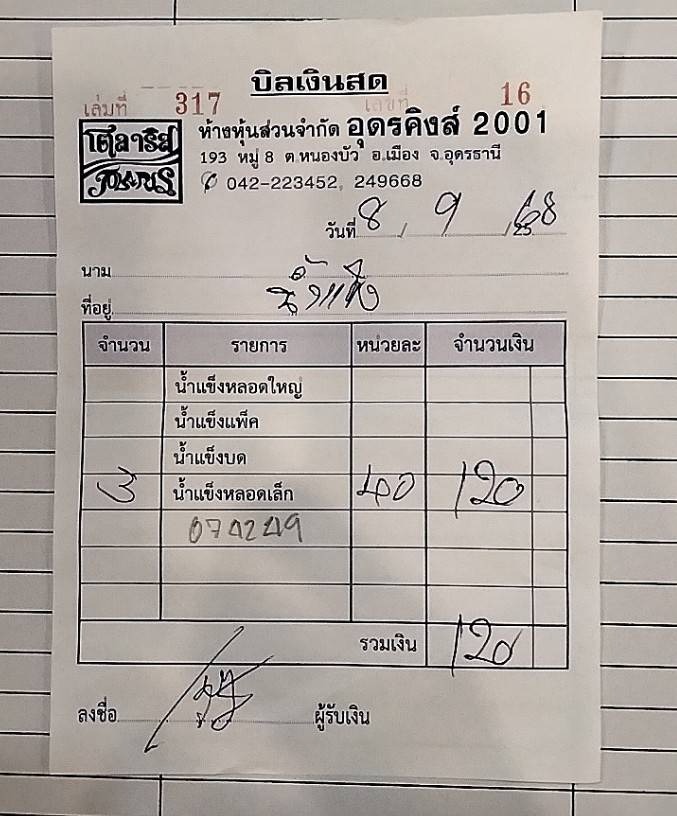 บิลเงินสด
เล่มที่ 317 เลขที่ 16
โพลาริส
ห้างหุ้นส่วนจำกัด อุดรคิงส์ 2001
193 หมู่ 8 ต.หนองบัว อ.เมือง จ.อุดรธานี
042-223452, 249668
วันที่ 8 / 9 / 2568
นาม
น้ำแข็ง
ที่อยู่
จำนวน รายการ หน่วยละ จำนวนเงิน
น้ำแข็งหลอดใหญ่
น้ำแข็งแพ็ค
น้ำแข็งบด
3 น้ำแข็งหลอดเล็ก 40 120
รวมเงิน 120
ลงชื่อ ผู้รับเงิน